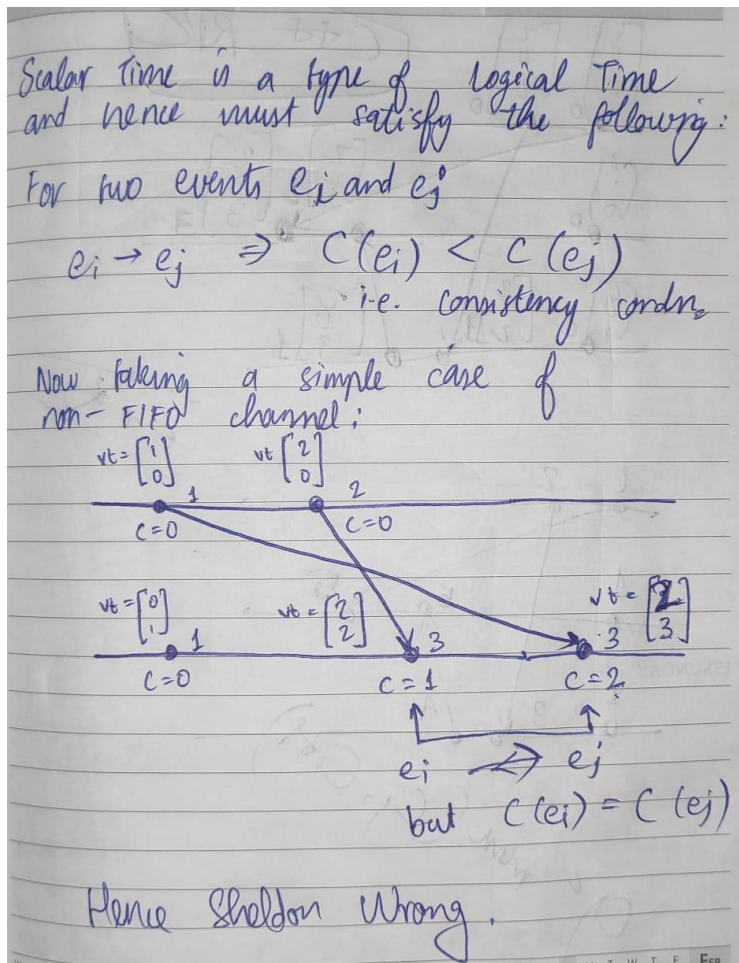 Scalar Time is a type of Logical Time
and hence must satisfy the following:
For two events ei and ej
ei → ej ⇒ C(ei) < C(ej)
i.e. consistency condn.
Now taking a simple case of
non-FIFO channel:
vt = [1 0] vt [2 0]
1 2
C=0 C=0
vt = [0 1] vt = [2 2] vt = [2 3]
1 3 3
C=0 C=1 C=2
ei → ej
but C(ei) = C(ej)
Hence Sheldon Wrong.